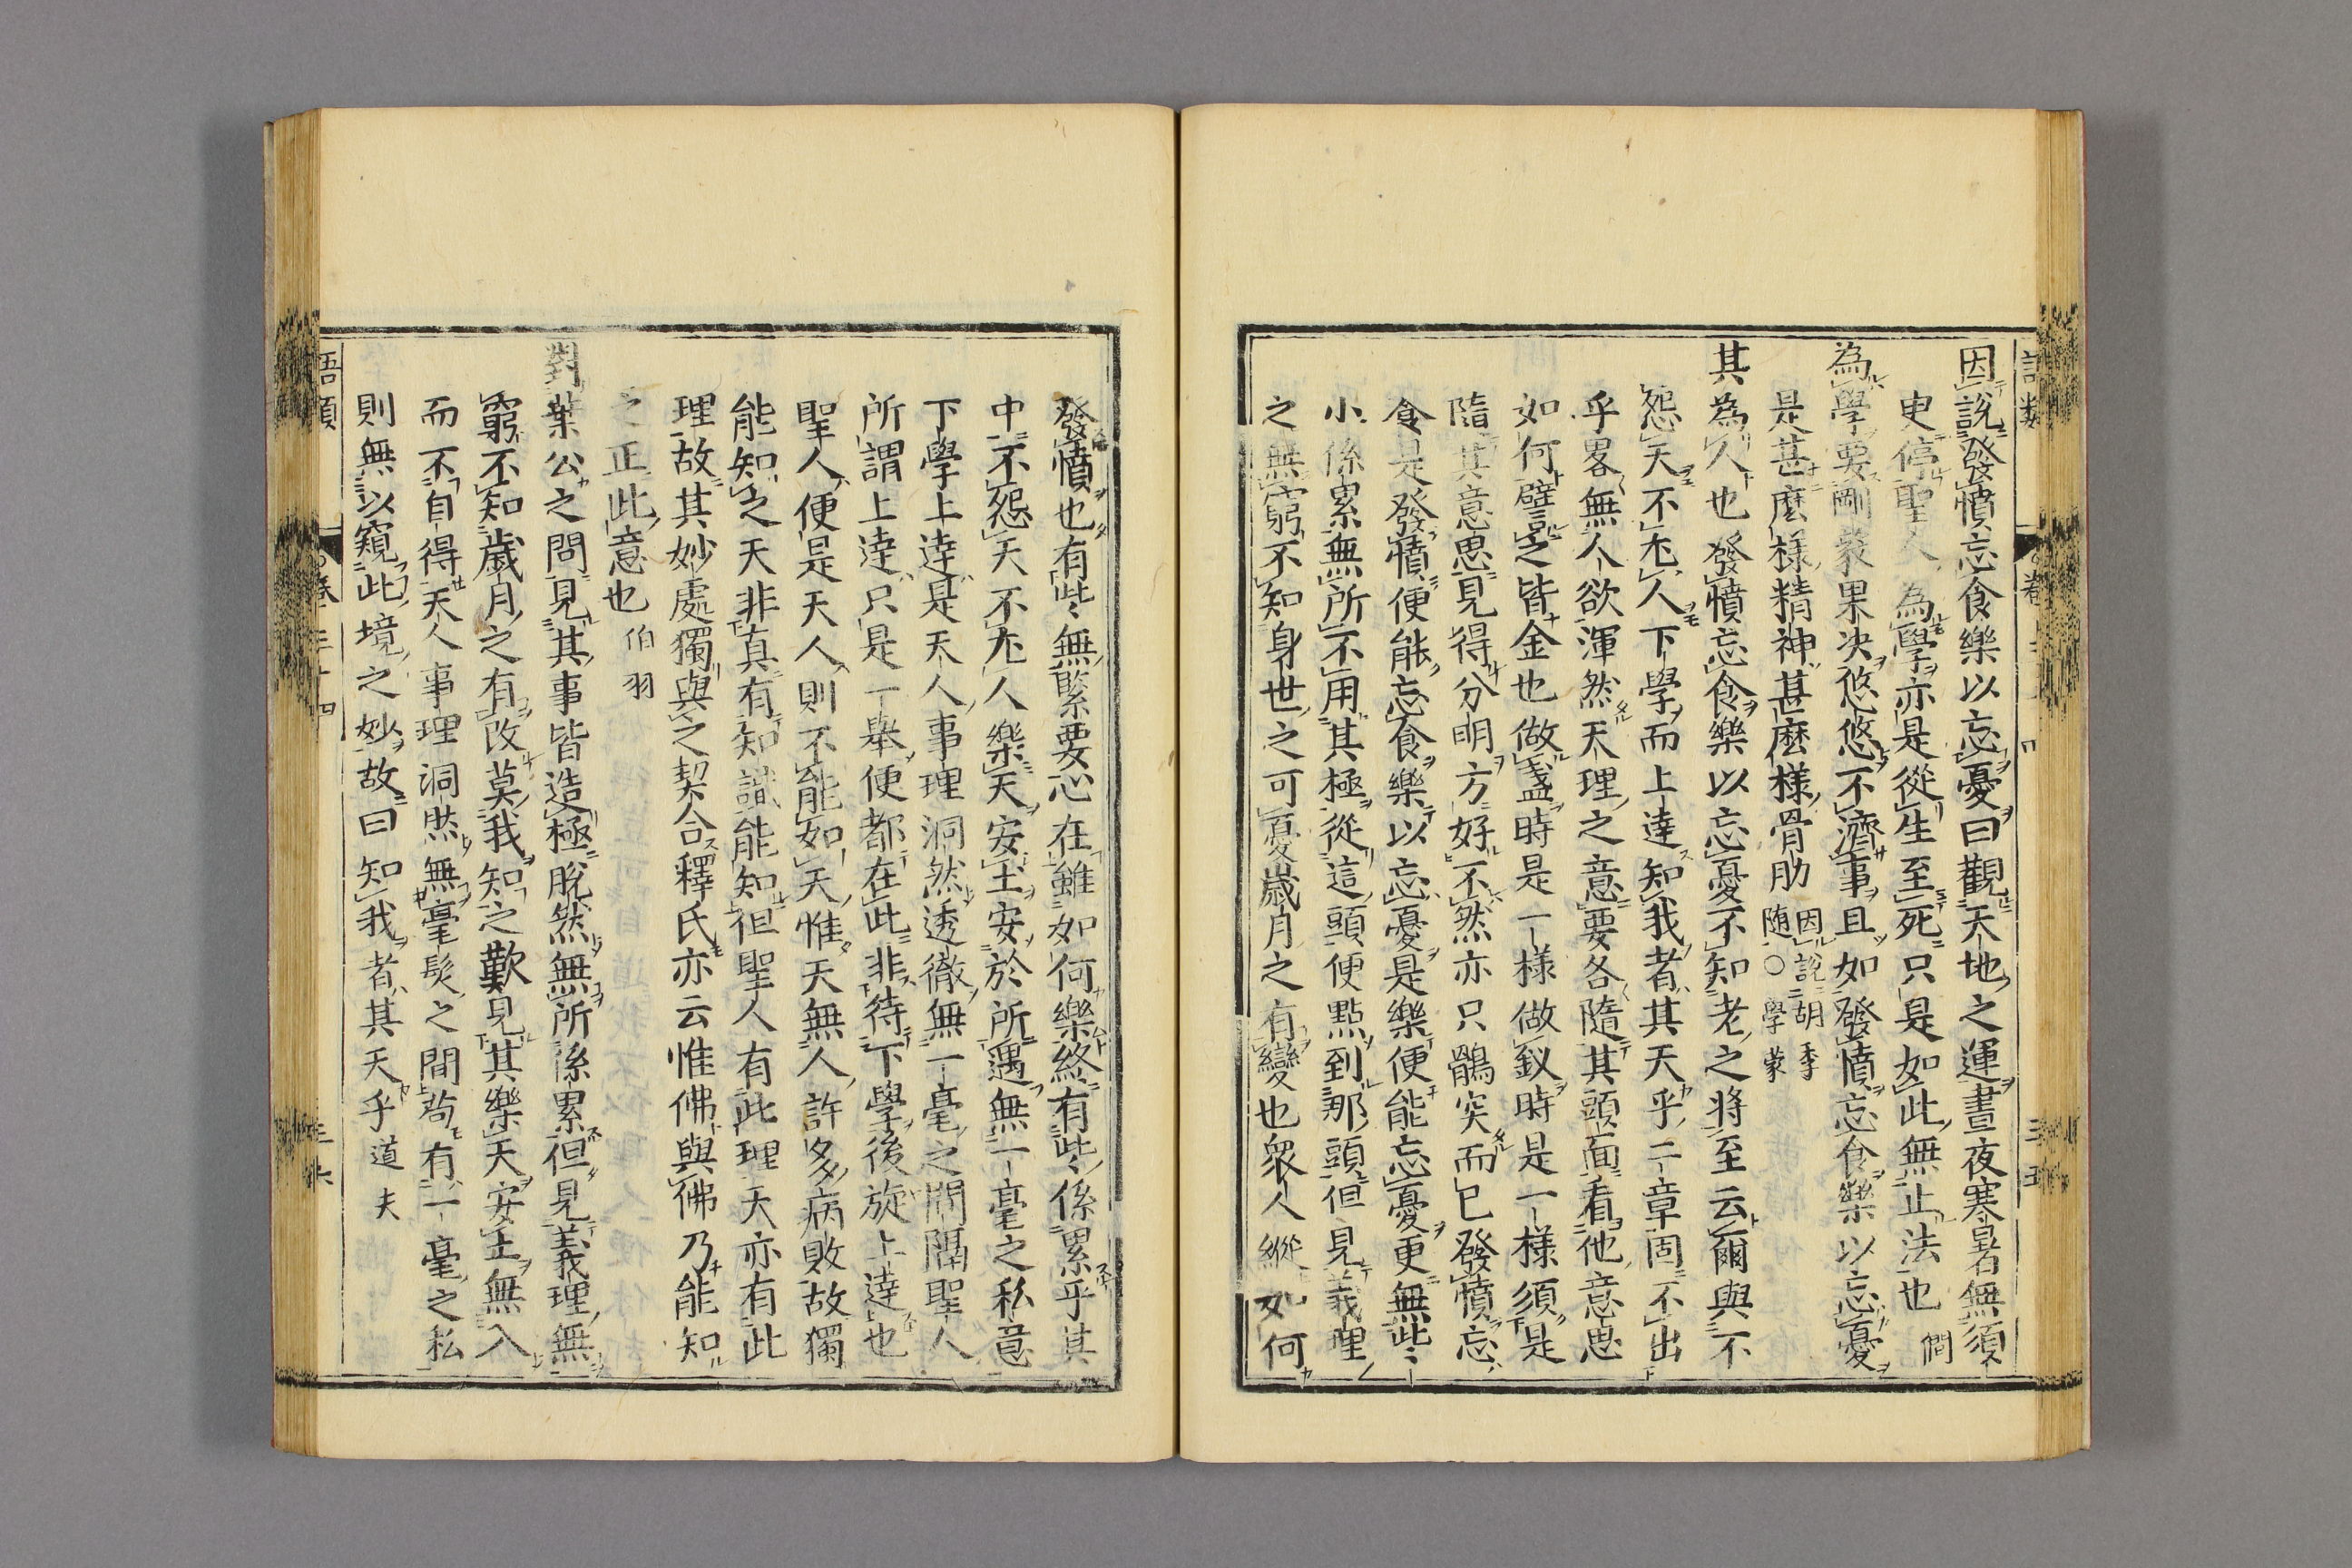 因說發憤忘食樂以忘憂曰觀天地之運晝夜寒暑無須
史停聖人為學亦是從生至死只是如此無止法也 僩
為學要剛毅果决悠悠不濟事且如發憤忘食樂以忘憂
是甚麽樣精神甚麽樣骨肋 因說胡季随○學蒙
其為人也發憤忘食樂以忘憂不知老之將至云爾與不
怨天不尤人下學而上達知我者其天乎二章固不出
乎畧無人欲渾然天理之意要各隨其頭面看他意思
如何譬之皆金也做盞時是一樣做釵時是一樣須是
隨其意思見得分明方好不然亦只鶻突而已發憤忘
食是發憤便能忘食樂以忘憂是樂便能忘憂更無些
小係累無所不用其極從這頭便點到那頭但見義理
之無窮不知身世之可憂歲月之有變也衆人縱如何
發憤也有些無緊要心在雖如何樂終有些係累乎其
中不怨天不尤人樂天安土安於所遇無一毫之私意
下學上達是天人事理洞然透徹無一毫之間隔聖人
所謂上達只是一舉便都在此非待下學後旋上達也
聖人便是天人則不能如天惟天無人許多病敗故獨
能知之天非真有知識能知但聖人有此理天亦有此
理故其妙處獨與之契合釋氏亦云惟佛與佛乃能知
之正此意也 伯羽
對葉公之問見其事皆造極脫然無所係累但見義理無
窮不知歲月之有改莫我知之歎見其樂天安土無入
而不自得天人事理洞然無毫髮之間苟有一毫之私
則無以窺此境之妙故曰知我者其天乎 道夫
語類 卷三十四 三六